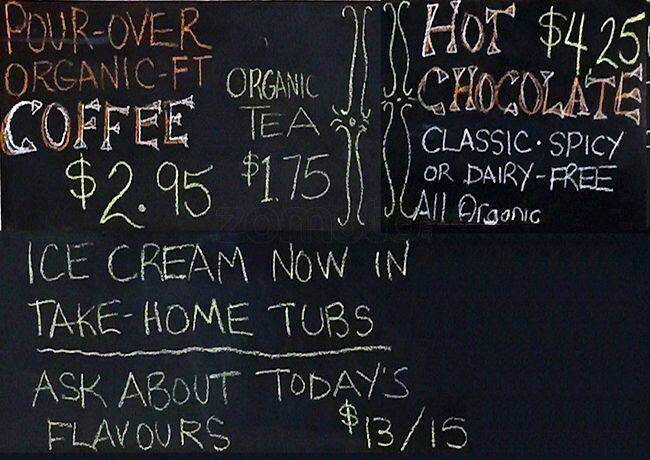 POUR-OVER
ORGANIC-FT
COFFEE
$2.95
ORGANIC
TEA
$1.75
HOT $4.25
CHOCOLATE
CLASSIC · SPICY
OR DAIRY-FREE
All Organic
ICE CREAM NOW IN
TAKE-HOME TUBS
ASK ABOUT TODAY'S
FLAVOURS $13/15